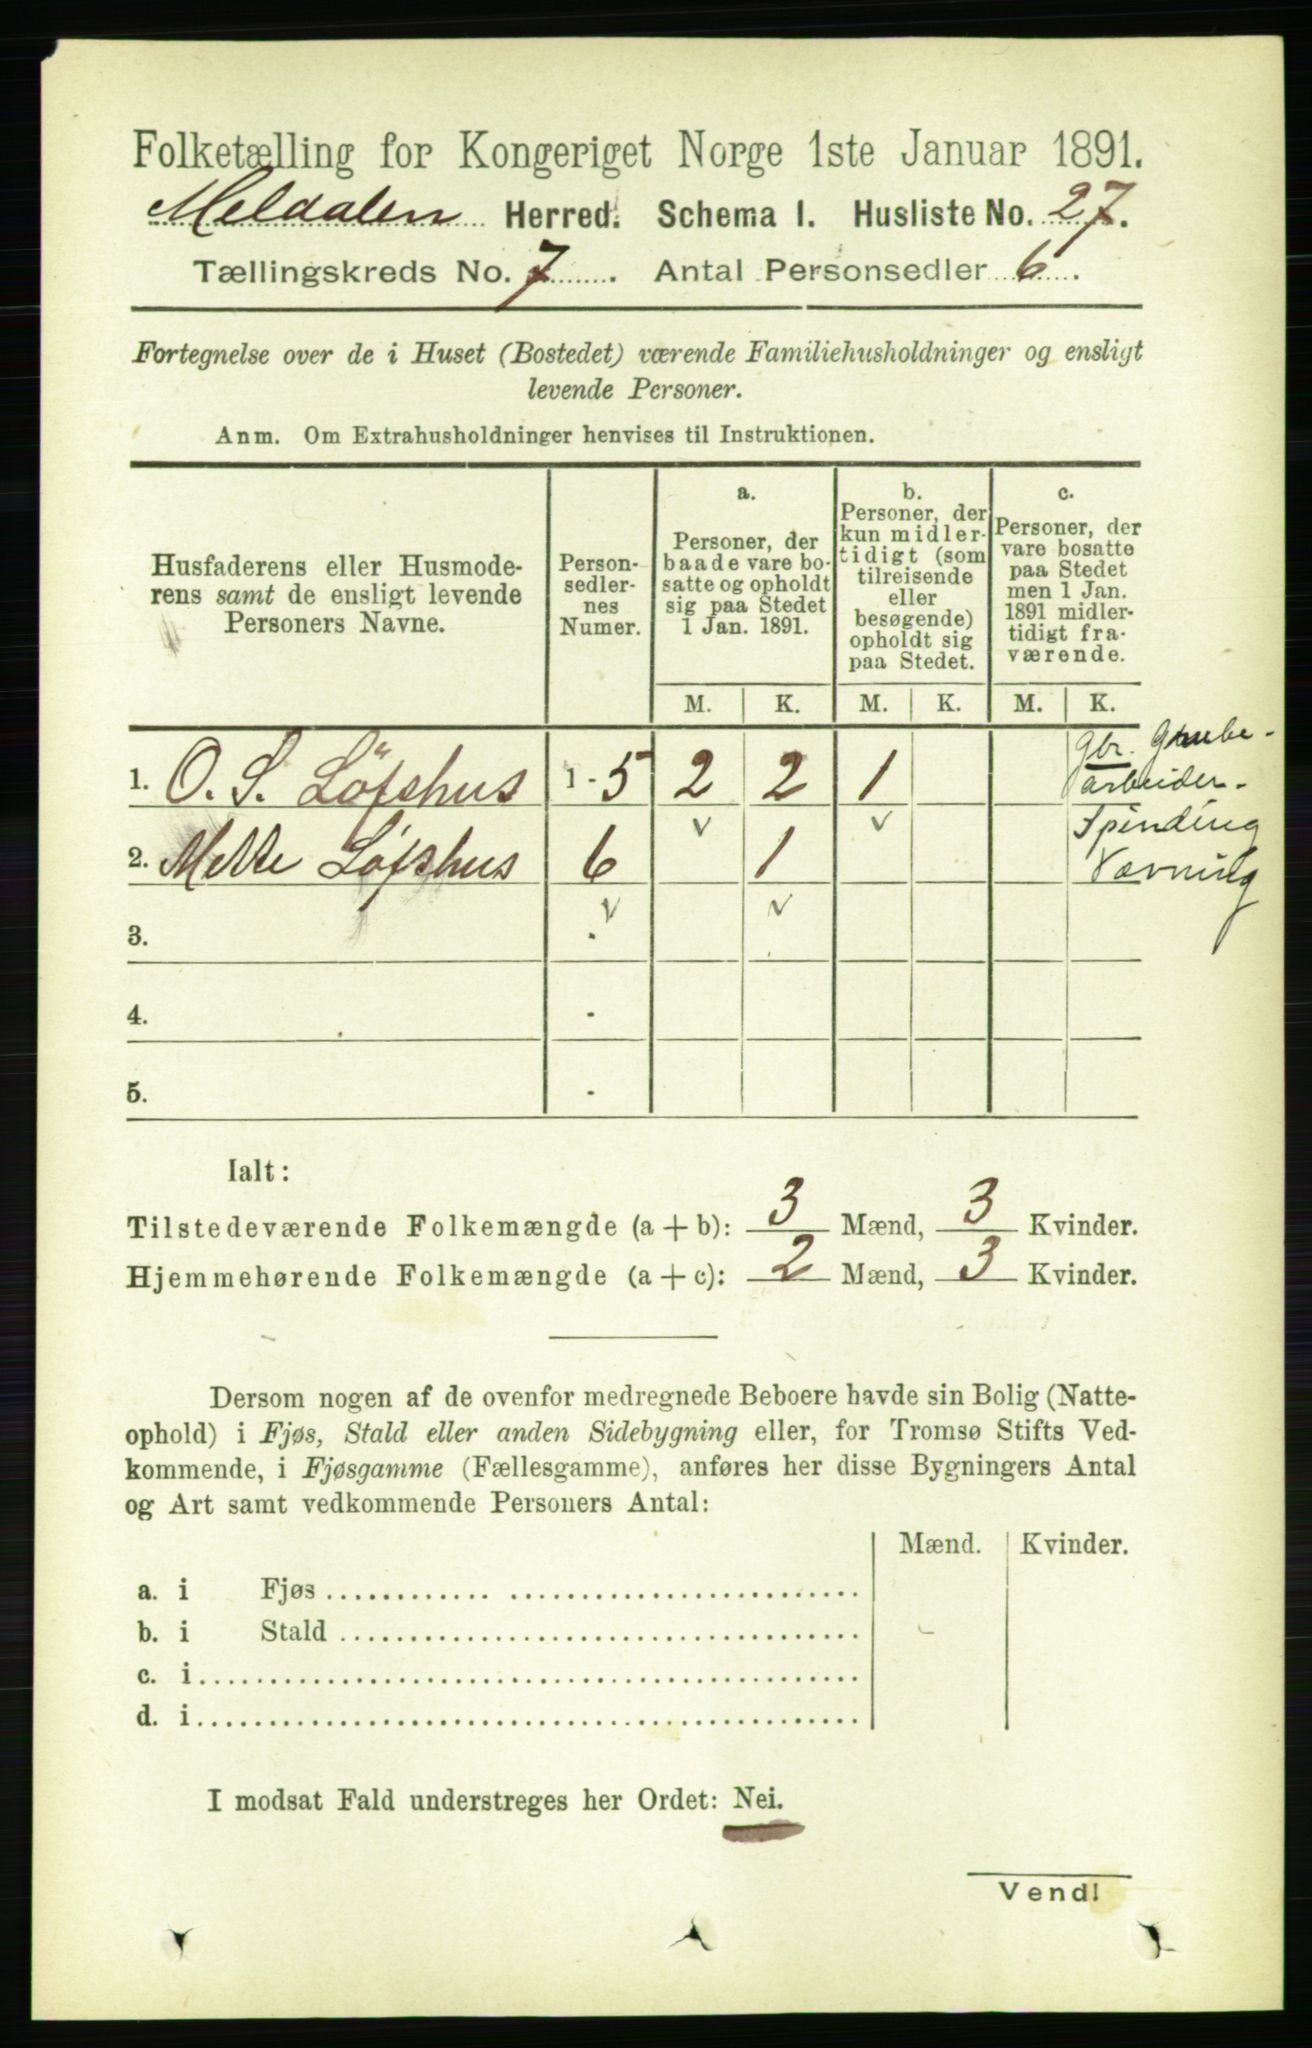 Folketælling for Kongeriget Norge 1ste Januar 1891.
Meldalen Herred. Schema I. Husliste No. 27.
Tællingskreds No. 7. Antal Personsedler 6.
Fortegnelse over de i Huset (Bostedet) værende Familiehusholdninger og ensligt
levende Personer.
Anm. Om Extrahusholdninger henvises til Instruktionen.
Husfaderens eller Husmode-
rens samt de ensligt levende
Personers Navne.
Person-
sedler-
nes
Numer.
a.
Personer, der
baade vare bo-
satte og opholdt
sig paa Stedet
1 Jan. 1891.
b.
Personer, der
kun midler-
tidigt (som
tilreisende
eller
besøgende)
opholdt sig
paa Stedet.
c.
Personer, der
vare bosatte
paa Stedet
men 1 Jan.
1891 midler-
tidigt fra-
værende.
M. K. M. K. M. K.
1. O. S. Löfshus 1 - 5 2 2 1 gbr. Grube-
arbeider.
2. Mette Löfshus 6 1 Spinding
Vævning
3.
4.
5.
Ialt:
Tilstedeværende Folkemængde (a + b): 3 Mænd, 3 Kvinder.
Hjemmehørende Folkemængde (a + c): 2 Mænd, 3 Kvinder.
Dersom nogen af de ovenfor medregnede Beboere havde sin Bolig (Natte-
ophold) i Fjøs, Stald eller anden Sidebygning eller, for Tromsø Stifts Ved-
kommende, i Fjøsgamme (Fællesgamme), anføres her disse Bygningers Antal
og Art samt vedkommende Personers Antal:
Mænd. Kvinder.
a. i Fjøs
b. i Stald
c. i
d. i
I modsat Fald understreges her Ordet: Nei.
Vend!